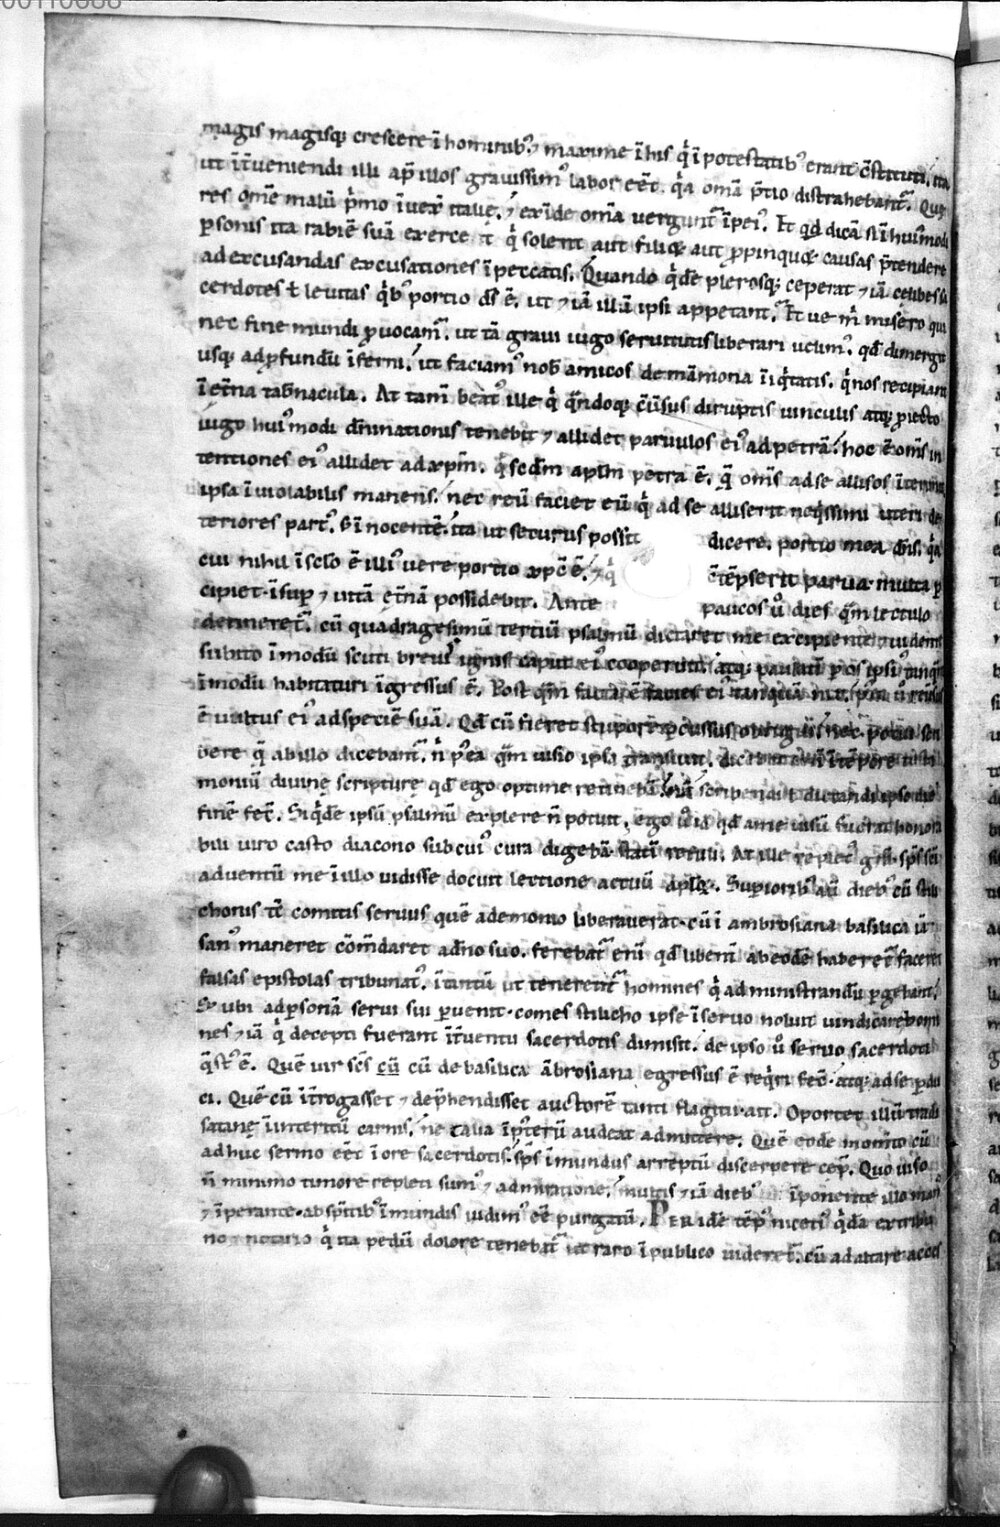 00110688
magis magisq; crescere ī hominib; ⁊ maxime ī his q̄ ī potestatib; erant c̄stituti, ita
ut īt̄ueniendi illi ap̄ illos grauissim᷒ labor eēt. q̄a om̄a p̄tio distrahebant᷑. Quę
res om̄e malū p̄mo īuex̄ italię. ⁊ exīde om̄a uergunt᷑ ī pei᷒. Et qd̄ dicā si ī hui᷒modi
p̱sonis ita rabiē suā exerce t q̄ solent aut filiiq; aut ꝓpinquiq; causas p̄tendere
ad excusandas excusationes ī peccatis. Quando q̄dē plerosq; ceperat ⁊ iā celibes sa
cerdotes ł leuitas q̄b᷒ portio ds̄ ē. ut ⁊ iā illū ipsi appetant᷑. Et ue m̄ misero qui
nec fine mundi ꝓuocam᷑. ut tā graui iugo seruitutis liberari uelim᷒. qd̄ dimergit
usq; ad ꝓfundū īferni. ut faciam᷒ nob̄ amicos de māmona īiq̄tatis. q̄ nos recipiant
ī et̄na tab̄nacula. At tam̄ beat᷒ ille q̄ q̄ndoq; c̄uersus diruptis uinculis atq; ꝓiecto
iugo hui᷒modi dn̄nationis tenebit ⁊ allidet paruulos ei᷒ ad petrā. hoc ē om̄s in
tentiones ei᷒ allidet ad xp̄m. q̄ scd̄m aplm̄ petra ē. q̄ om̄s ad se allisos īterimit
ipsa īuiolabilis manens. nec reū faciet eū q̄ ad se alliserit neq̄ssimi uteri de
teriores part᷒. s; īnocentē. ita ut securus possit dicere. portio mea dn̄s. q̄a
cui nihil ī sclo ē illi᷒ uere portio xp̄c ē. ⁊ q̄ c̄tēpserit parua. multa p̱
cipiet. īsup̱ ⁊ uitā et̄nā possidebit. Ante paucos ū dies q̄m lectulo
detineret᷑. cū quadragesimū tertiū psalmū dictaret me excipiente ⁊ uidente
subito ī modū scuti breuis ignis caput ei᷒ cooperuit atq; paulatī p̱ os ipsi᷒ tanq̄
ī modū habitaturi īgressus ē. Post q̄m facta ē facies ei᷒ tanquā nix.
ē uultus ei᷒ ad speciē suā. Qd̄ cū fieret stupore ꝑcussus obrigui nec potui scri
bere q̄ ab illo dicebant᷑. n̄ p̄ea q̄m uisio ipsa transiuit. dicebat enī ī tēpore testi
moniū diuinę scripturę qd̄ ego optime retinebā. nā scribendi ł dictandi ipso die
finē fec̄. Siq̄dē ipsū psalmū explere n̄ potuit. ego ū id qd̄ a me uisū fuerat honora
bili uiro casto diacono sub cui᷒ cura degebā statī retuli. At ille replet᷒ grā sp̄s sc̄i
aduentū me ī illo uidisse docuit lectione actuū aplōꝝ. Superiorib᷒ aū dieb᷒ cū stili
chonis tc̄ comitis seruus quē a demonio liberauerat. cū ī ambrosiana basilica iā
san᷒ maneret cōm̄daret a dn̄o suo. ferebat᷑ enī qd̄ libent᷑ ab eodē haberet᷑ faceret
falsas epistolas tribunat᷒. ī tantū ut tenerent᷑ homines q̄ ad ministrandū p̱gebant.
Et ubi ad p̱sonā serui sui p̱uenit. comes stilicho ipse ī seruo noluit uindicare. homi
nes ⁊ iā q̄ decepti fuerant īt̄uentu sacerdotis dimisit. de ipso ū seruo sacerdoti
q̄st᷒ ē. Quē uir scs̄ cū cū de basilica ābrosiana egressus ē req̄ri fec̄. atq; ad se p̱du
ci. Quē cū īt̄rogasset ⁊ dep̄hendisset auctorē tanti flagitii. ait. Oportet illū tradi
satanę ī interitū carnis. ne talia ī post̄rū audeat admittere. Quē eodē momto cū
adhuc sermo eēt ī ore sacerdotis. sp̄s īmundus arreptū discerpere cep̄. Quo uiso
n̄ minimo timore repleti sum᷒ ⁊ admiratione. multis ⁊ iā dieb᷒ īponente illo man᷒
⁊ īperante. ab sp̄itib᷒ īmundis uidim᷒ eē purgatū. PEr idē tēp᷒ niceti᷒ q̄dā ex tribu
no ⁊ notario q̄ ita pedū dolore tenebat᷑ ut raro ī publico uideret᷑. cū ad altare acces